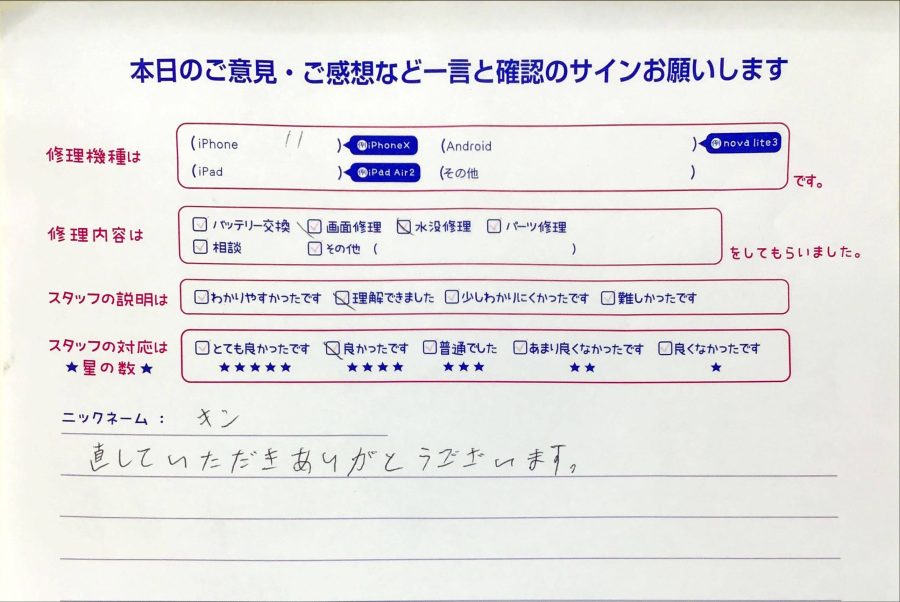 本日のご意見・ご感想など一言と確認のサインお願いします
修理機種は
(iPhone 11 ) 例iPhoneX (Android ) 例nova lite3
(iPad ) 例iPad Air2 (その他 )
です。
修理内容は
バッテリー交換 画面修理 水没修理 パーツ修理
相談 その他 ( )
をしてもらいました。
スタッフの説明は わかりやすかったです 理解できました 少しわかりにくかったです 難しかったです
スタッフの対応は とても良かったです 良かったです 普通でした あまり良くなかったです 良くなかったです
★星の数★ ★★★★★ ★★★★ ★★★ ★★ ★
ニックネーム: キン
直していただきありがとうございます。